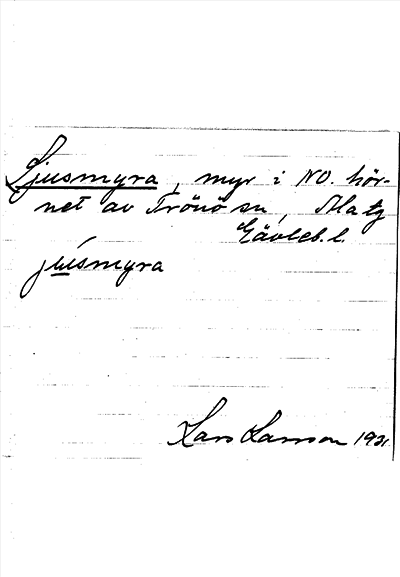 Ljusmyra, myr i NO. hör-
net av Trönö sn,
Gävleb. l.
júsmyra
Lars Larsson 1921